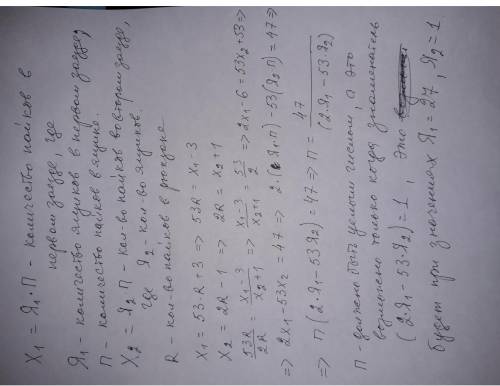 X₁ = Я₁·П - количество пайков в
первом заезде, где
Я₁ - количество ящиков в первом заезде,
П - количество пайков в ящике.
X₂ = Я₂·П - кол-во пайков во втором заезде,
где Я₂ - кол-во ящиков.
R - кол-во пайков в рюкзаке
X₁ = 53·R + 3 => 53R = X₁ - 3
X₂ = 2R - 1 => 2R = X₂ + 1
53R/2R = (X₁ - 3)/(X₂ + 1) => (X₁ - 3)/(X₂ + 1) = 53/2 => 2X₁ - 6 = 53X₂ + 53 =>
=> 2X₁ - 53X₂ = 47 => 2·(Я₁·П) - 53(Я₂·П) = 47 =>
=> П(2·Я₁ - 53Я₂) = 47 => П = 47/(2·Я₁ - 53·Я₂)
П - должно быть целым числом, а это
возможно только когда знаменатель
(2·Я₁ - 53·Я₂) = 1, это
будет при значениях Я₁ = 27, Я₂ = 1